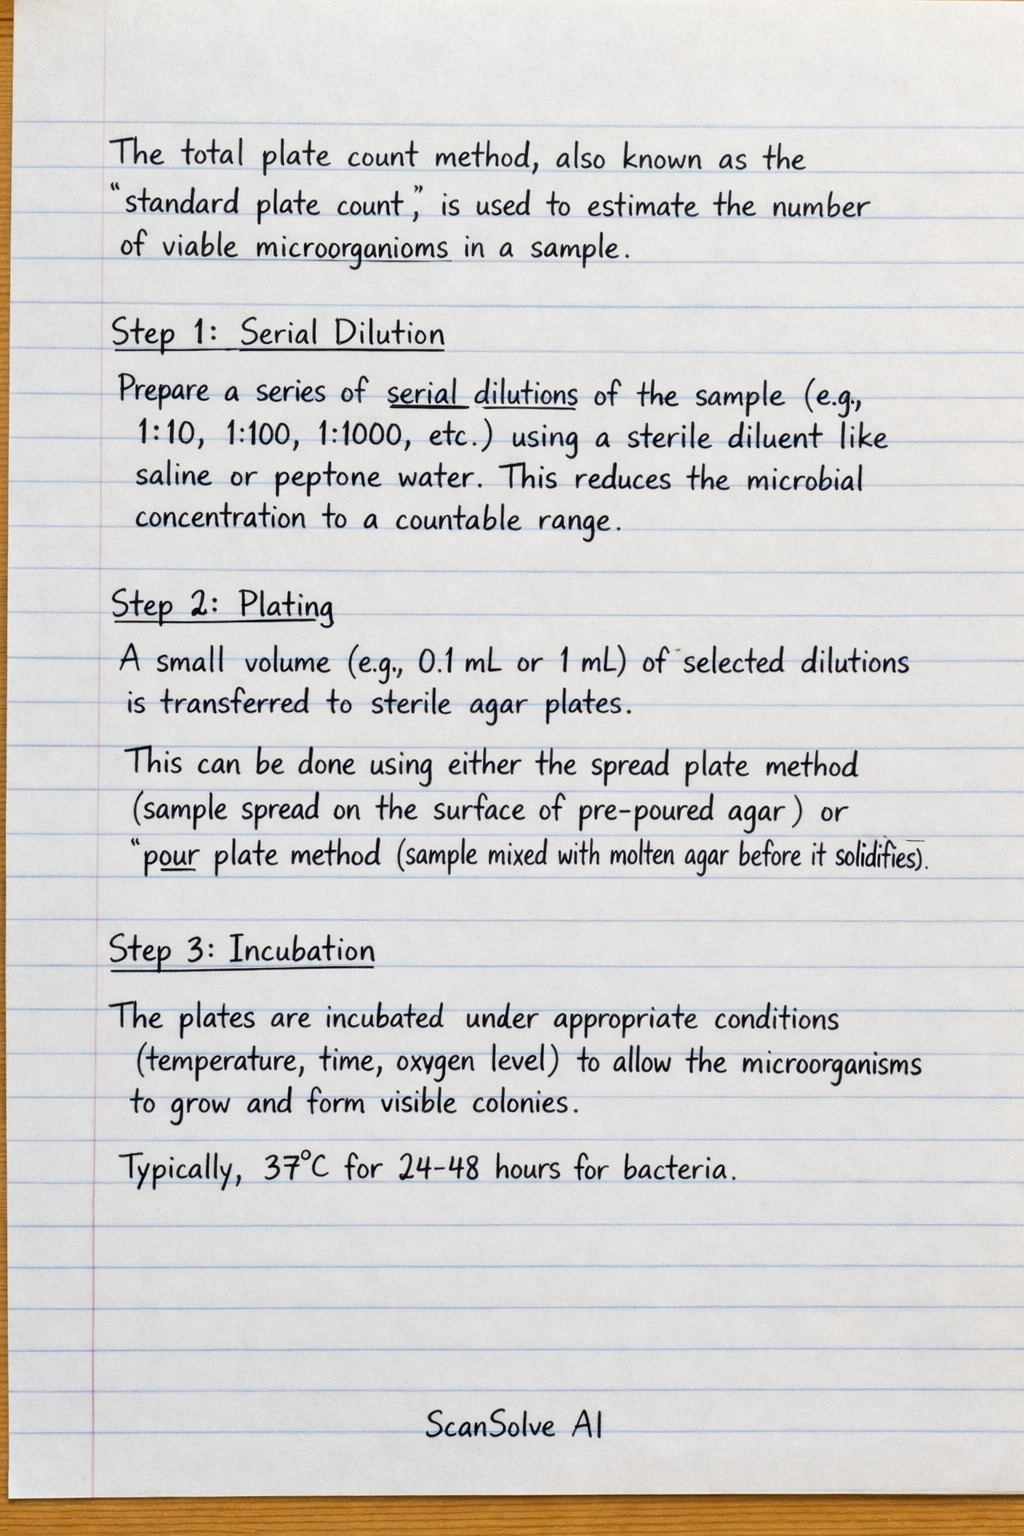 The total plate count method, also known as the
“standard plate count”, is used to estimate the number
of viable microorganioms in a sample.
Step 1: Serial Dilution
Prepare a series of serial dilutions of the sample (e.g.,
1:10, 1:100, 1:1000, etc.) using a sterile diluent like
saline or peptone water. This reduces the microbial
concentration to a countable range.
Step 2: Plating
A small volume (e.g., 0.1 mL or 1 mL) of selected dilutions
is transferred to sterile agar plates.
This can be done using either the spread plate method
(sample spread on the surface of pre-poured agar) or
“pour plate method (sample mixed with molten agar before it solidifies).
Step 3: Incubation
The plates are incubated under appropriate conditions
(temperature, time, oxygen level) to allow the microorganisms
to grow and form visible colonies.
Typically, 37°C for 24-48 hours for bacteria.
ScanSolve AI